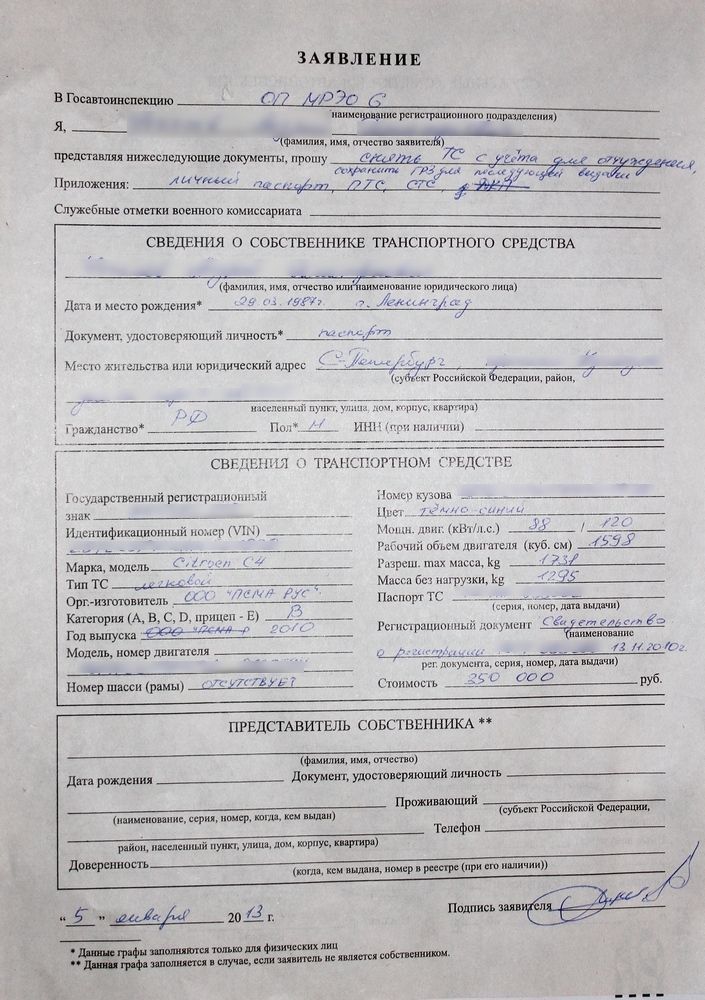 ЗАЯВЛЕНИЕ
В Госавтоинспекцию ОП МРЭО 6
наименование регистрационного подразделения)
Я,
(фамилия, имя, отчество заявителя)
представляя нижеследующие документы, прошу снять ТС с учёта для отчуждения,
сохранить ГРЗ для последующей выдачи
Приложения: личный паспорт, ПТС, СТС
Служебные отметки военного комиссариата
СВЕДЕНИЯ О СОБСТВЕННИКЕ ТРАНСПОРТНОГО СРЕДСТВА
(фамилия, имя, отчество или наименование юридического лица)
Дата и место рождения* 29.03.1987г. г. Ленинград
Документ, удостоверяющий личность* паспорт
Место жительства или юридический адрес С-Петербург,
(субъект Российской Федерации, район,
населенный пункт, улица, дом, корпус, квартира)
Гражданство* РФ Пол* М ИНН (при наличии)
СВЕДЕНИЯ О ТРАНСПОРТНОМ СРЕДСТВЕ
Государственный регистрационный
знак
Идентификационный номер (VIN)
Марка, модель Citroen C4
Тип ТС легковой
Орг.-изготовитель ООО "ПСМА РУС"
Категория (A, B, C, D, прицеп - E) B
Год выпуска ООО "ПСМА Р 2010
Модель, номер двигателя
Номер шасси (рамы) отсутствует
Номер кузова
Цвет тёмно-синий
Мощн. двиг. (кВт/л.с.) 88 / 120
Рабочий объем двигателя (куб. см) 1598
Разреш. max масса, kg 1731
Масса без нагрузки, kg 1295
Паспорт ТС
(серия, номер, дата выдачи)
Регистрационный документ Свидетельство
(наименование
о регистрации 13.11.2010г.
рег. документа, серия, номер, дата выдачи)
Стоимость 350 000 руб.
ПРЕДСТАВИТЕЛЬ СОБСТВЕННИКА **
(фамилия, имя, отчество)
Дата рождения Документ, удостоверяющий личность
Проживающий
(наименование, серия, номер, когда, кем выдан) (субъект Российской Федерации,
Телефон
район, населенный пункт, улица, дом, корпус, квартира)
Доверенность
(когда, кем выдана, номер в реестре (при его наличии))
"5" января 2013 г. Подпись заявителя
* Данные графы заполняются только для физических лиц
** Данная графа заполняется в случае, если заявитель не является собственником.